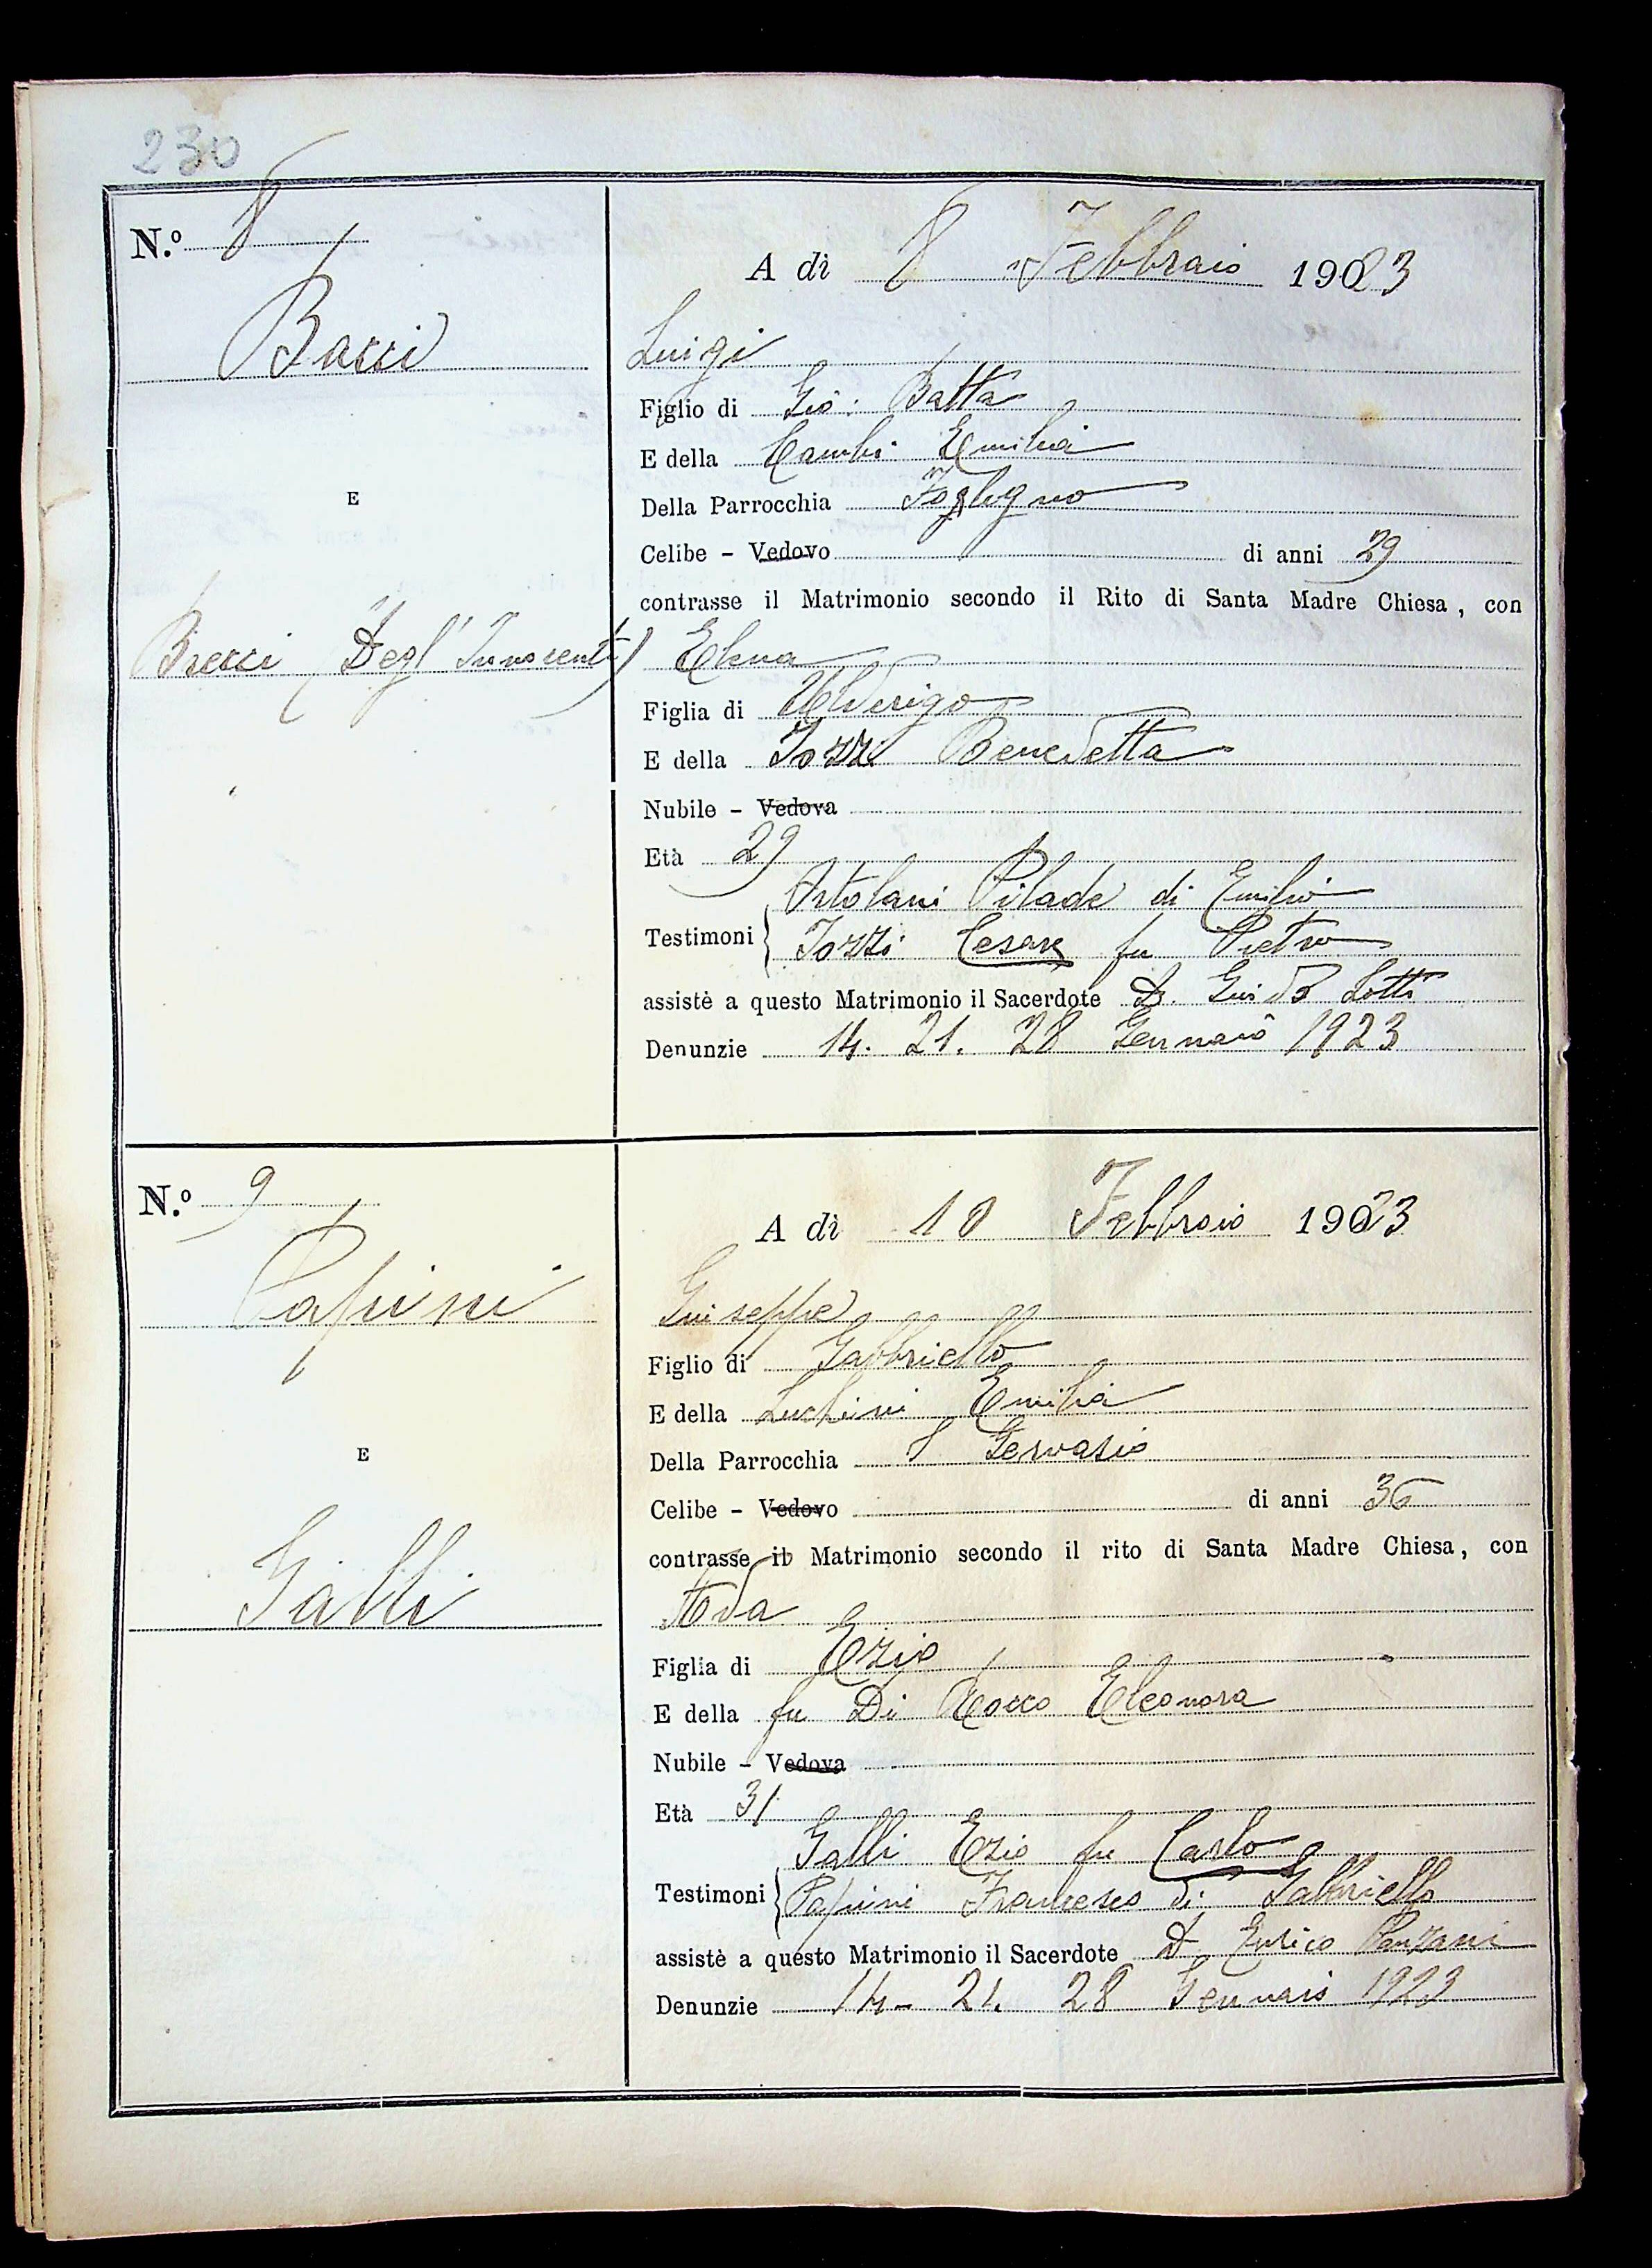 230
N.º 8
A dì 8 Febbraio 1923
Bacci
Luigi
Figlio di Gio: Batta
E della Cambi Emilia
E
Della Parrocchia Fogligno
Celibe - Vedovo di anni 29
contrasse il Matrimonio secondo il Rito di Santa Madre Chiesa, con
Brecci (Degl'Innocenti) Elena
Figlia di Ulderigo
E della Tozzi Benedetta
Nubile - Vedova
Età 29
Ortolani Pilade di Emilio
Testimoni Tozzi Cesare fu Pietro
assistè a questo Matrimonio il Sacerdote D. Guido Lotti
Denunzie 14. 21. 28 Gennaio 1923
N.º 9
A dì 10 Febbraio 1923
Papini
Giuseppe
Figlio di Gabbriello
E della Luchini Emilia
E
Della Parrocchia S Gervasio
Celibe - Vedovo di anni 36
contrasse il Matrimonio secondo il rito di Santa Madre Chiesa, con
Galli
Ada
Figlia di Ezio
E della fu Di Rocco Eleonora
Nubile - Vedova
Età 31
Galli Ezio fu Carlo
Testimoni Papini Francesco di Gabbriello
assistè a questo Matrimonio il Sacerdote D. Enrico Panzani
Denunzie 14- 21. 28 Gennaio 1923